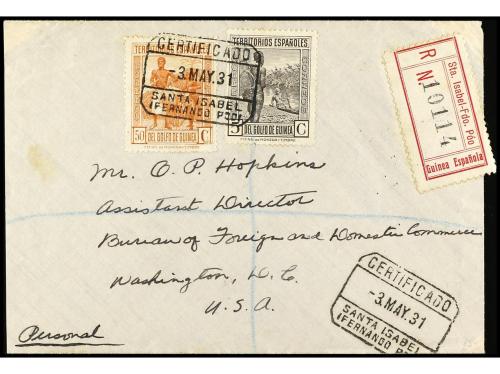 TERRITORIOS ESPAÑOLES
50 C
DEL GOLFO DE GUINEA
TERRITORIOS ESPAÑOLES
CORREOS
5 C
DEL GOLFO DE GUINEA
CERTIFICADO
-3.MAY.31
SANTA ISABEL
(FERNANDO POO)
R
N 10114
Sta. Isabel-Fdo. Póo
Guinea Española
Mr. O. P. Hopkins
Assistant Director
Bureau of Foreign and Domestic Commerce
Washington, D.C.
U.S.A.
Personal
CERTIFICADO
-3.MAY.31
SANTA ISABEL
(FERNANDO PO